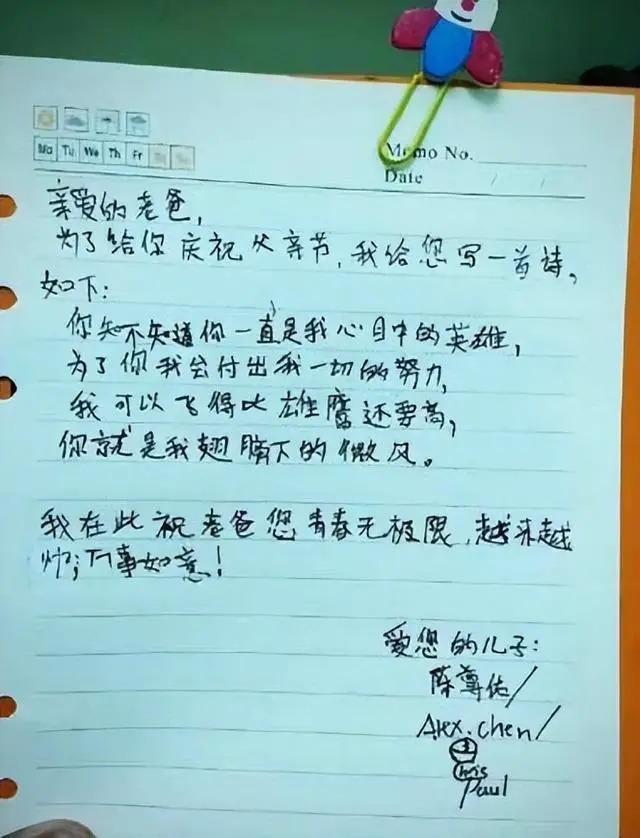 Mo Tu We Th Fr
Memo No.
Date / /
亲爱的老爸,
为了给你庆祝父亲节,我给您写一首诗,
如下:
你知不知道你一直是我心目中的英雄,
为了你我会付出我一切的努力,
我可以飞得比雄鹰还要高,
你就是我翅膀下的微风。
我在此祝老爸您青春无极限,越来越
帅;万事如意!
爱您的儿子:
陈尊佑/
Alex.chen/
Chris
Paul